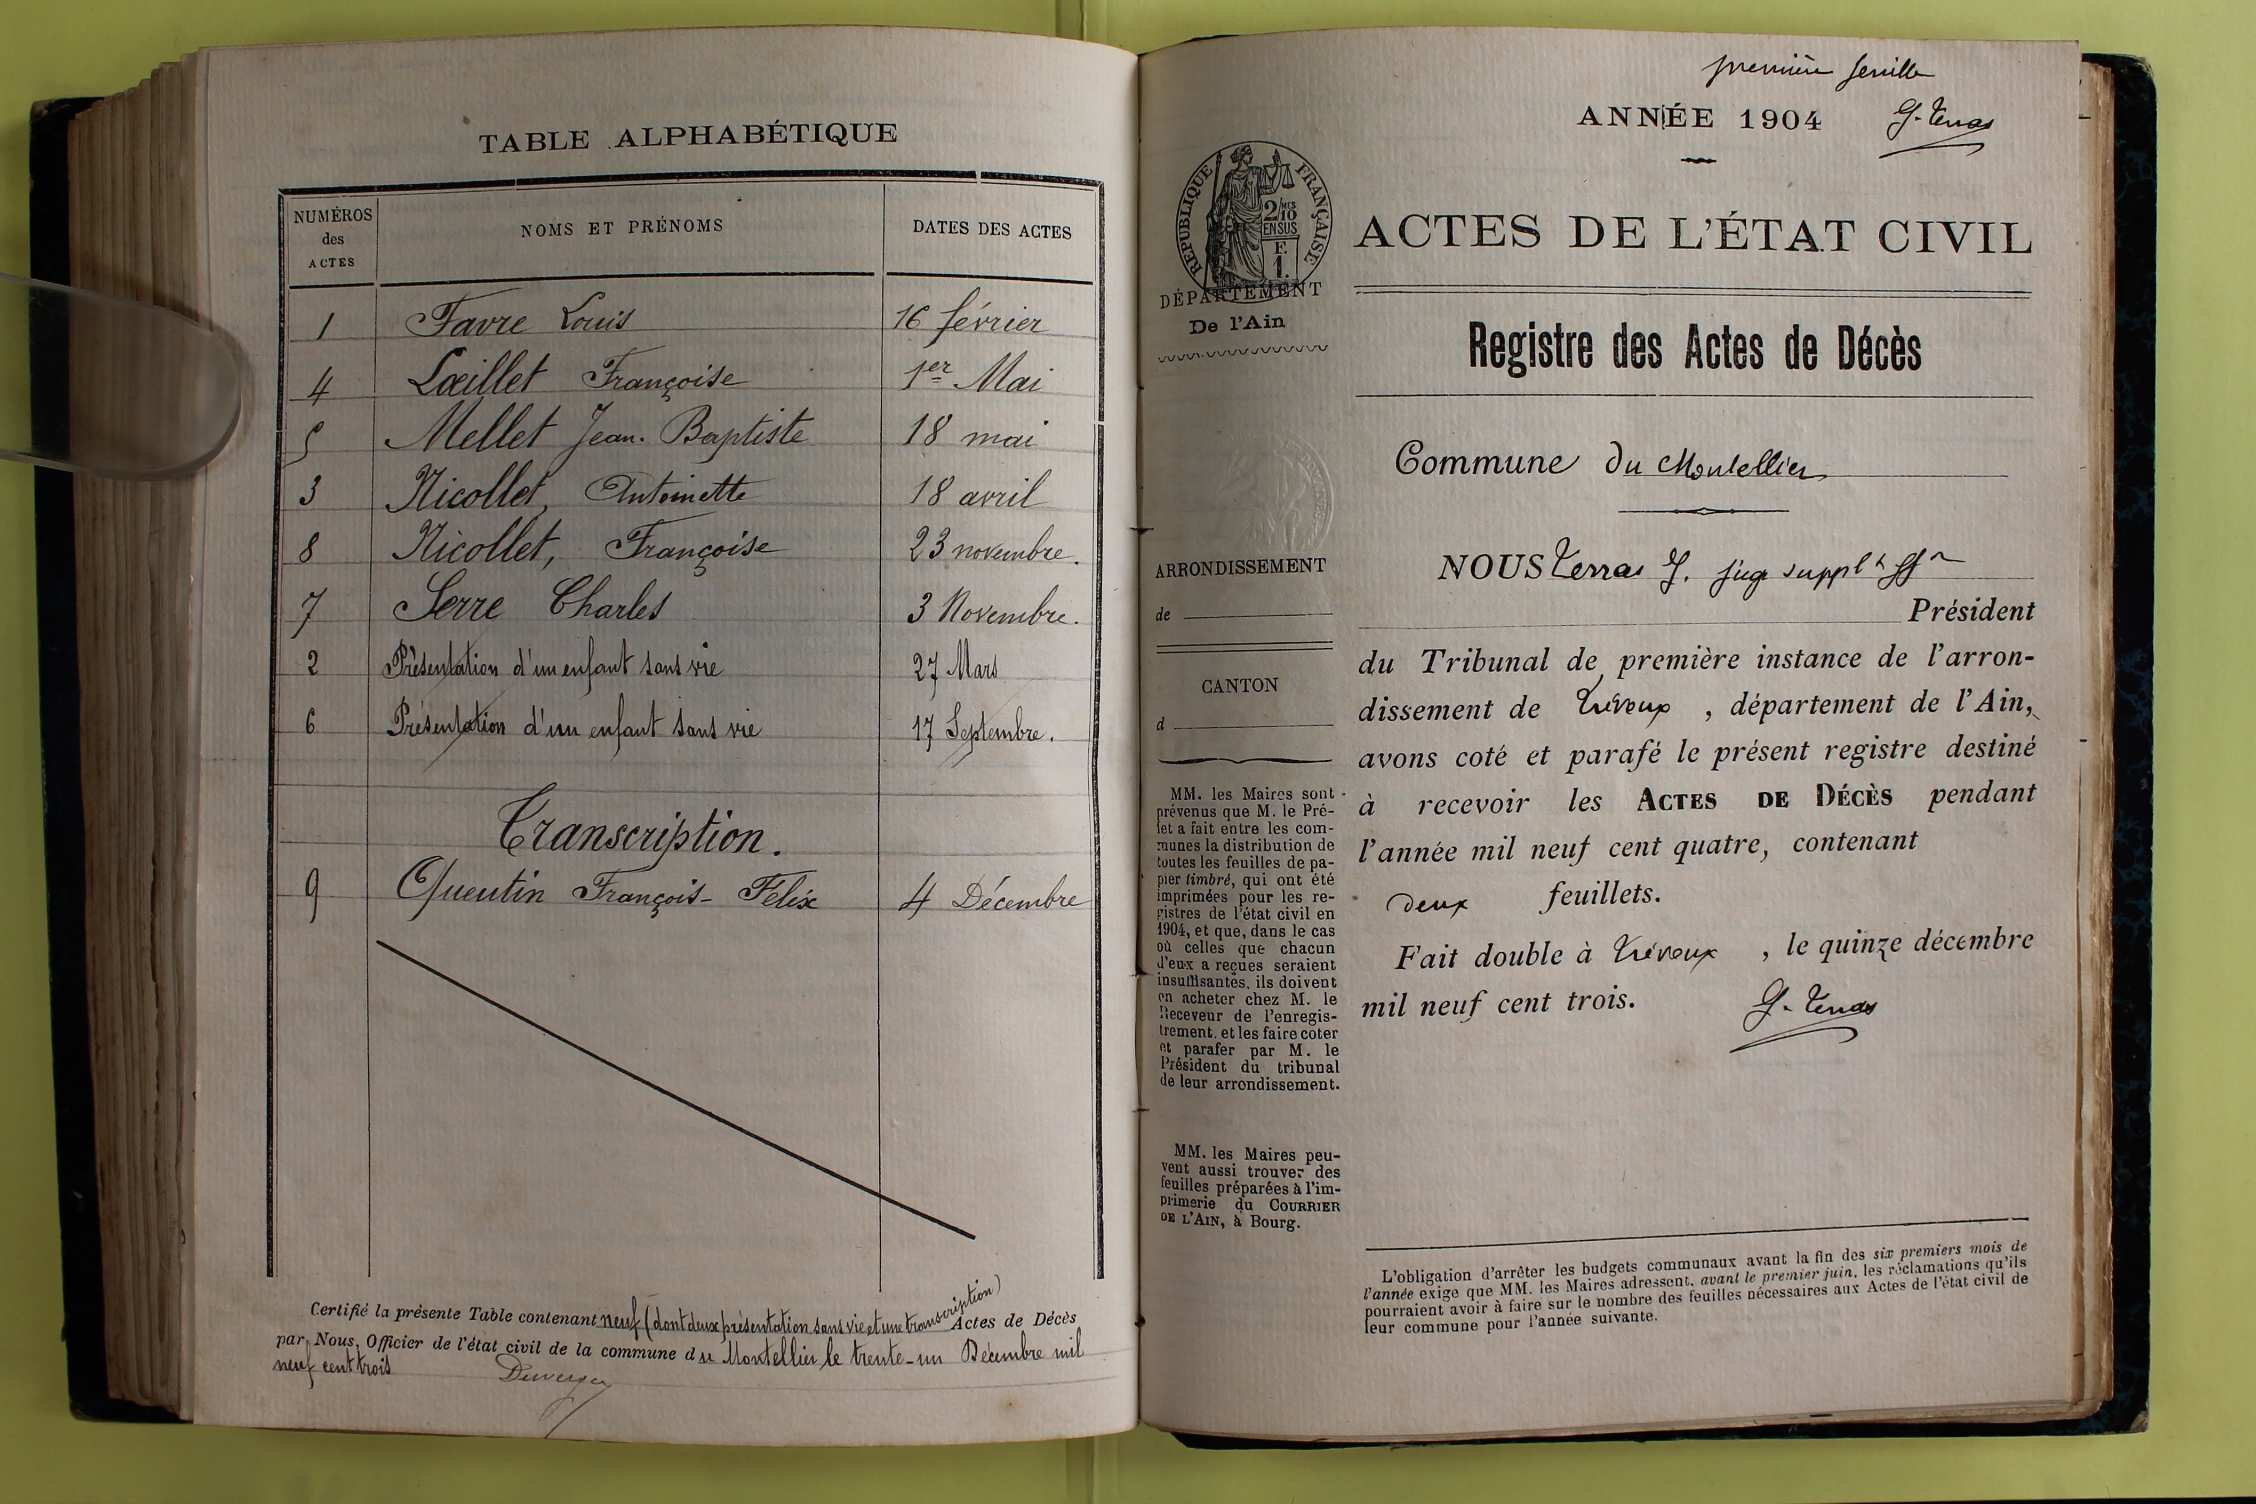 TABLE ALPHABÉTIQUE
NUMÉROS des ACTES NOMS ET PRÉNOMS DATES DES ACTES
1 Favre Louis 16 février
4 Lœillet Françoise 1er Mai
5 Mellet Jean-Baptiste 18 mai
3 Nicollet, Antoinette 18 avril
8 Nicollet, Françoise 23 novembre.
7 Serre Charles 3 Novembre.
2 Présentation d'un enfant sans vie 27 Mars
6 Présentation d'un enfant sans vie 17 Septembre.
Transcription.
9 Quentin François-Félix 4 Décembre
Certifié la présente Table contenant neuf (dont deux présentation sans vie et une transcription) Actes de Décès
par Nous, Officier de l'état civil de la commune du Montellier le trente-un Décembre mil
neuf cent trois
première feuille
ANNÉE 1904 G. Terras
RÉPUBLIQUE FRANÇAISE
2/10 MES
EN SUS
F.
1.
DÉPARTEMENT
De l'Ain
ACTES DE L'ÉTAT CIVIL
Registre des Actes de Décès
Commune du Montellier
ARRONDISSEMENT
de
CANTON
d
MM. les Maires sont
prévenus que M. le Pré-
fet a fait entre les com-
munes la distribution de
toutes les feuilles de pa-
pier timbré, qui ont été
imprimées pour les re-
gistres de l'état civil en
1904, et que, dans le cas
où celles que chacun
d'eux a reçues seraient
insuffisantes, ils doivent
en acheter chez M. le
Receveur de l'enregis-
trement, et les faire coter
et parafer par M. le
Président du tribunal
de leur arrondissement.
MM. les Maires peu-
vent aussi trouver des
feuilles préparées à l'im-
primerie du COURRIER
DE L'AIN, à Bourg.
NOUS Terras G. juge suppl
Président
du Tribunal de première instance de l'arron-
dissement de Trévoux, département de l'Ain,
avons coté et parafé le présent registre destiné
à recevoir les ACTES DE DÉCÈS pendant
l'année mil neuf cent quatre, contenant
deux feuillets.
Fait double à Trévoux, le quinze décembre
mil neuf cent trois. G. Terras
L'obligation d'arrêter les budgets communaux avant la fin des six premiers mois de
l'année exige que MM. les Maires adressent, avant le premier juin, les réclamations qu'ils
pourraient avoir à faire sur le nombre des feuilles nécessaires aux Actes de l'état civil de
leur commune pour l'année suivante.